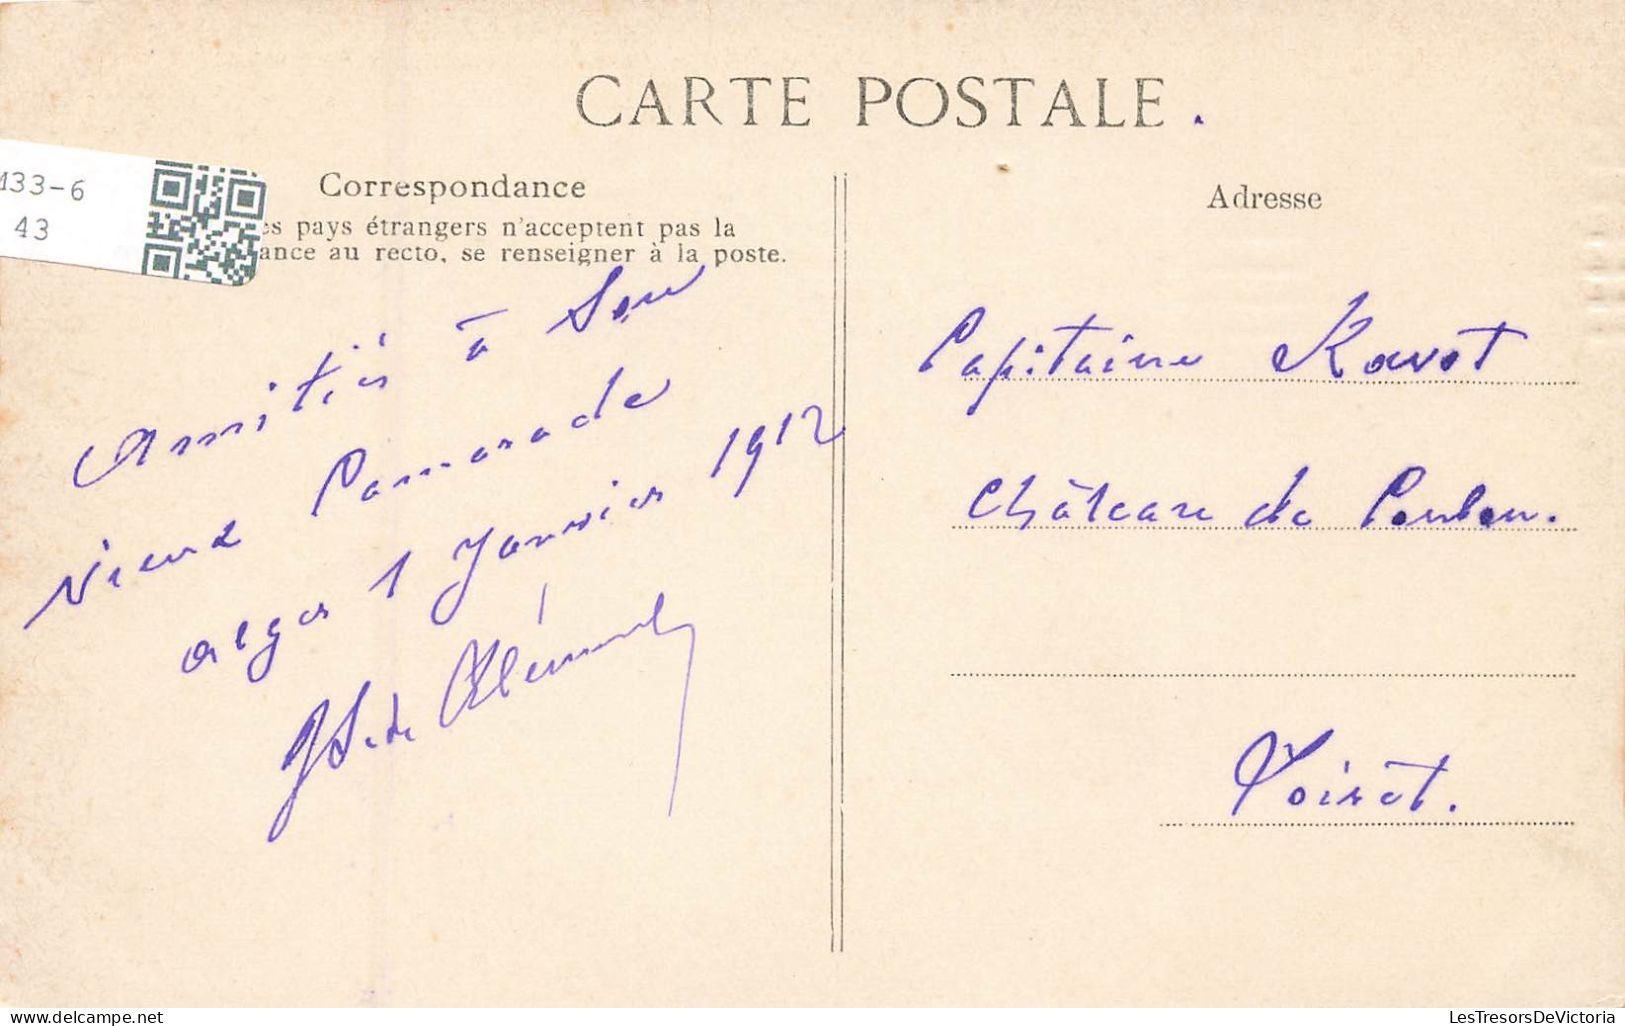 CARTE POSTALE
133-6
43
Correspondance
es pays étrangers n'acceptent pas la
ance au recto, se renseigner à la poste.
Amitiés à son
vieux Camarade
Alger 1 Janvier 1912
de
Adresse
Capitaine Ravot
Château de
LesTresorsDeVictoria